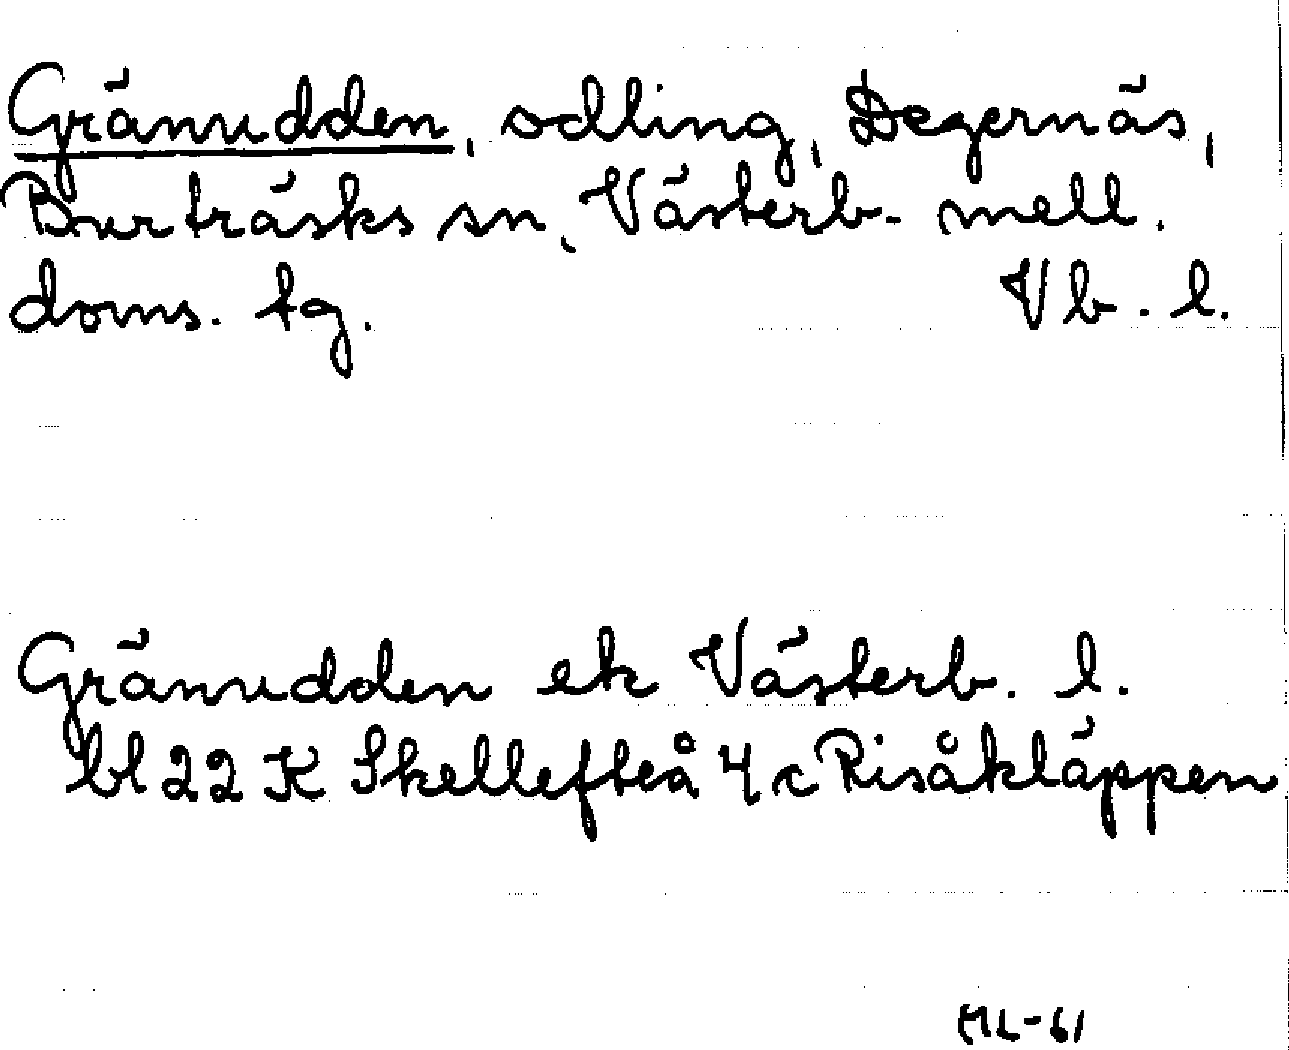 Gränudden, odling, Degernäs,
Burträsks sn, Västerb. mell.
doms. tg. Vb. l.
Gränudden ek Västerb. l.
bl 22 K Skellefteå 4 c Risåkläppen
ML-61